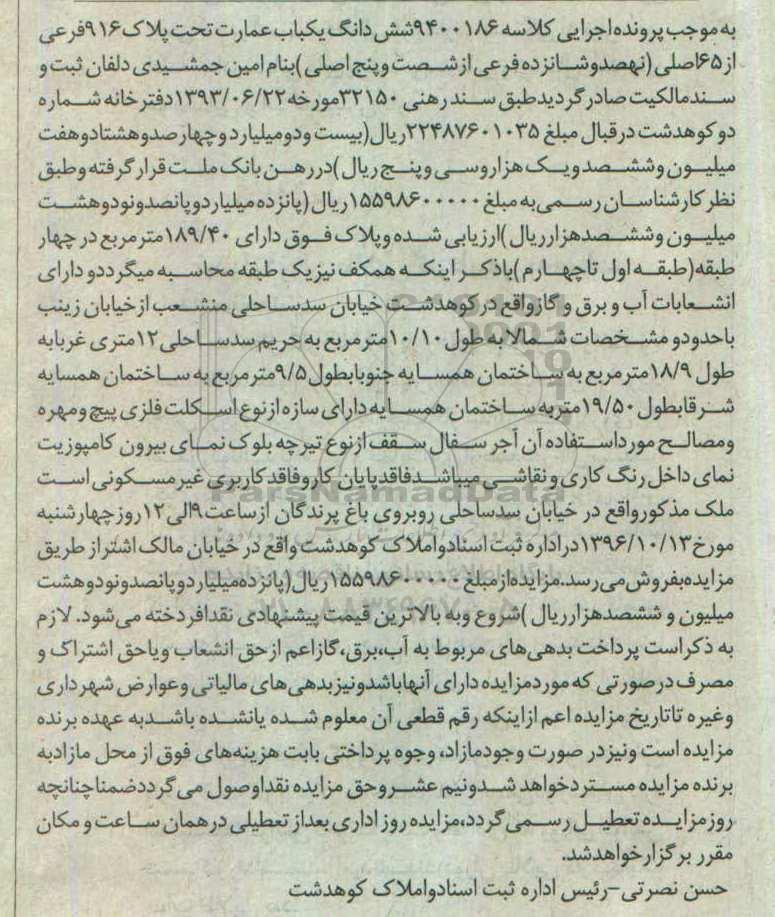 به موجب پرونده اجرایی کلاسه ۹۴۰۰۱۸۶ شش دانگ یکباب عمارت تحت پلاک ۹۱۶ فرعی
از ۶۵ اصلی (نهصدو شانزده فرعی از شصت و پنج اصلی) بنام امین جمشیدی دلفان ثبت و
سند مالکیت صادر گردید طبق سند رهنی ۳۲۱۵۰ مورخه ۱۳۹۳/۰۶/۲۲ دفترخانه شماره
دو کوهدشت در قبال مبلغ ۲۲۴۸۷۶۰۱۰۳۵ ریال (بیست و دو میلیارد و چهارصدو هشتادو هفت
میلیون و ششصد و یک هزار و سی و پنج ریال) در رهن بانک ملت قرار گرفته و طبق
نظر کارشناسان رسمی به مبلغ ۱۵۵۹۸۶۰۰۰۰۰ ریال (پانزده میلیارد و پانصدو نودو هشت
میلیون و ششصد هزار ریال) ارزیابی شده و پلاک فوق دارای ۱۸۹/۴۰ متر مربع در چهار
طبقه (طبقه اول تا چهارم) با ذکر اینکه همکف نیز یک طبقه محاسبه میگردد و دارای
انشعابات آب و برق و گاز واقع در کوهدشت خیابان سدساحلی منشعب از خیابان زینب
با حدود و مشخصات شمالا به طول ۱۰/۱۰ متر مربع به حریم سدساحلی ۱۲ متری غربا به
طول ۱۸/۹ متر مربع به ساختمان همسایه جنوبا بطول ۹/۵ متر مربع به ساختمان همسایه
شرقا بطول ۱۹/۵۰ متر به ساختمان همسایه دارای سازه از نوع اسکلت فلزی پیچ و مهره
و مصالح مورد استفاده آن آجر سفال سقف از نوع تیرچه بلوک نمای بیرون کامپوزیت
نمای داخل رنگ کاری و نقاشی میباشد فاقد پایان کار و فاقد کاربری غیر مسکونی است
ملک مذکور واقع در خیابان سدساحلی روبروی باغ پرندگان از ساعت ۹ الی ۱۲ روز چهارشنبه
مورخ ۱۳۹۶/۱۰/۱۳ در اداره ثبت اسناد و املاک کوهدشت واقع در خیابان مالک اشتر از طریق
مزایده بفروش می رسد. مزایده از مبلغ ۱۵۵۹۸۶۰۰۰۰۰ ریال (پانزده میلیارد و پانصدو نودو هشت
میلیون و ششصد هزار ریال) شروع و به بالاترین قیمت پیشنهادی نقدا فردخته می شود. لازم
به ذکر است پرداخت بدهی های مربوط به آب، برق، گاز اعم از حق انشعاب و یا حق اشتراک و
مصرف در صورتی که مورد مزایده دارای آنها باشد و نیز بدهی های مالیاتی و عوارض شهرداری
و غیره تا تاریخ مزایده اعم از اینکه رقم قطعی آن معلوم شده یا نشده باشد به عهده برنده
مزایده است و نیز در صورت وجود مازاد، وجوه پرداختی بابت هزینه های فوق از محل مازاد به
برنده مزایده مسترد خواهد شد و نیم عشر و حق مزایده نقدا وصول می گردد ضمنا چنانچه
روز مزایده تعطیل رسمی گردد، مزایده روز اداری بعد از تعطیلی در همان ساعت و مکان
مقرر برگزار خواهد شد.
حسن نصرتی - رئیس اداره ثبت اسناد و املاک کوهدشت
ParsNamadData